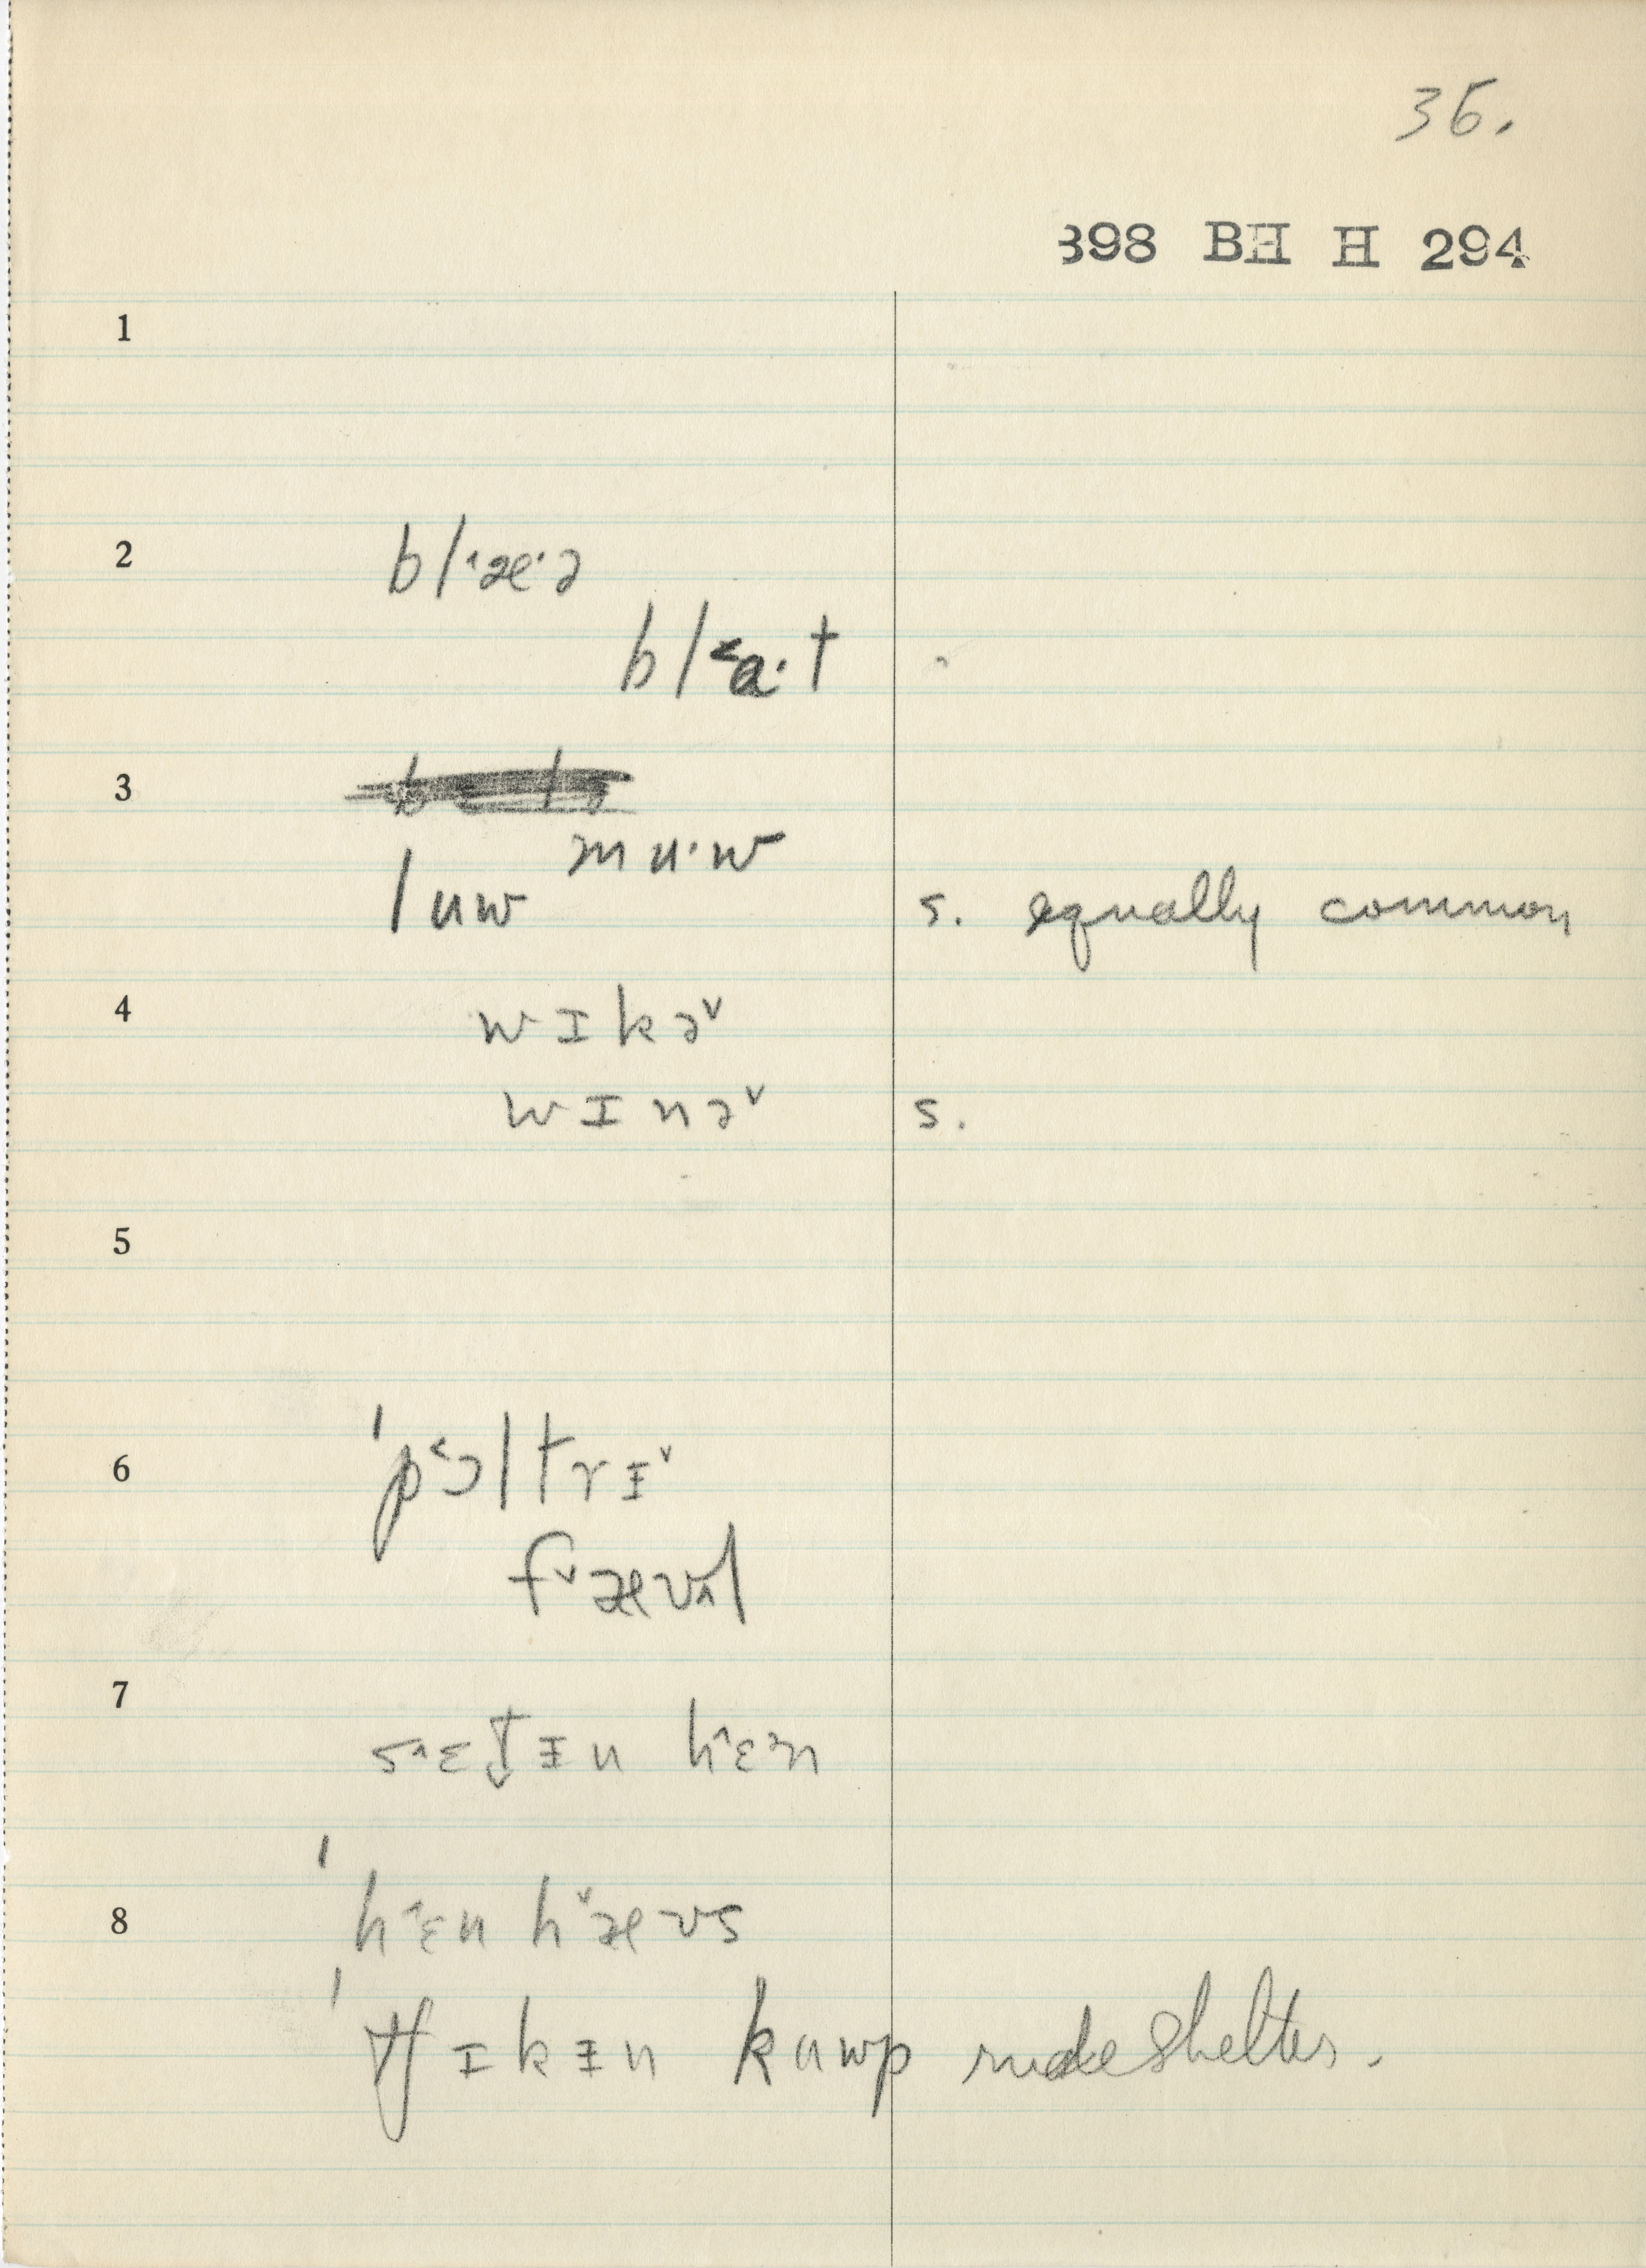 36.
398 BH H 294
1
2
b l ˄æ· ə
b l ˂a· t
3
m u· w
l u w s. equally common
4
w ɪ k ə ˅
w ɪ n ə ˅ s.
5
6
ˈp ˂ɔ l t r ɪ̵ ˅
f ˅æ ʊ ʌ l
7
s ˄ɛ t̬ ɪ̵ n h ˄ɛ n
8
ˈh ˄ɛ n h ˅æ ʊ s
ˈtʃ ɪ k ɪ̵ n k u w p rude shelter.